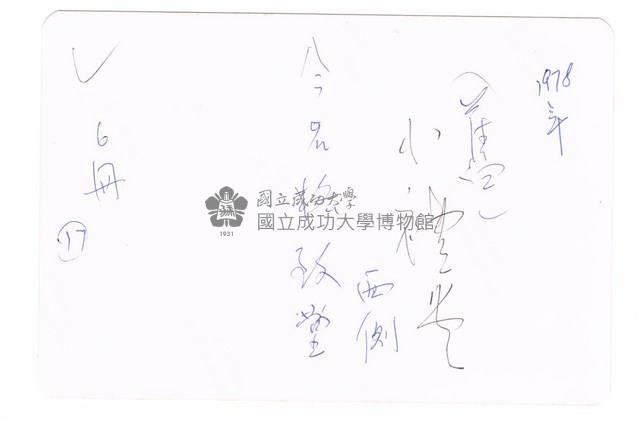 1978年
(舊)
小禮堂
西側
今名格致堂
✓ 6冊
17
國立成功大學
國立成功大學博物館
1931